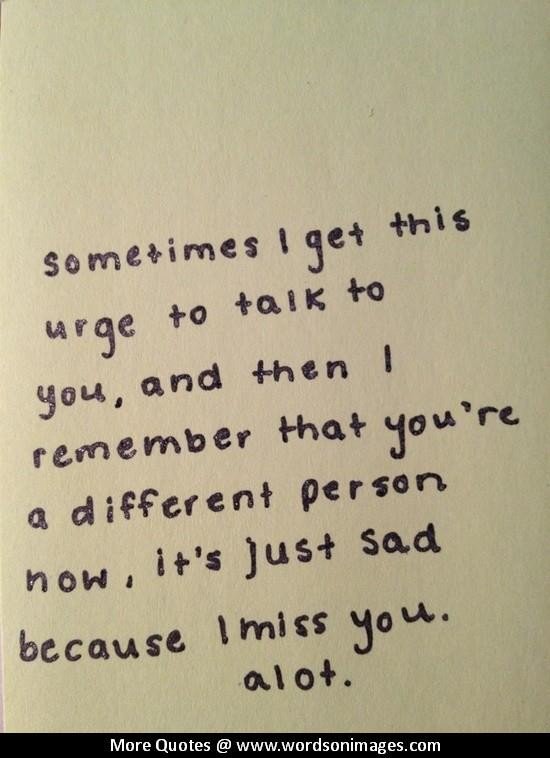 sometimes I get this
urge to talk to
you, and then I
remember that you're
a different person
now, it's just sad
because I miss you.
alot.
More Quotes @ www.wordsonimages.com